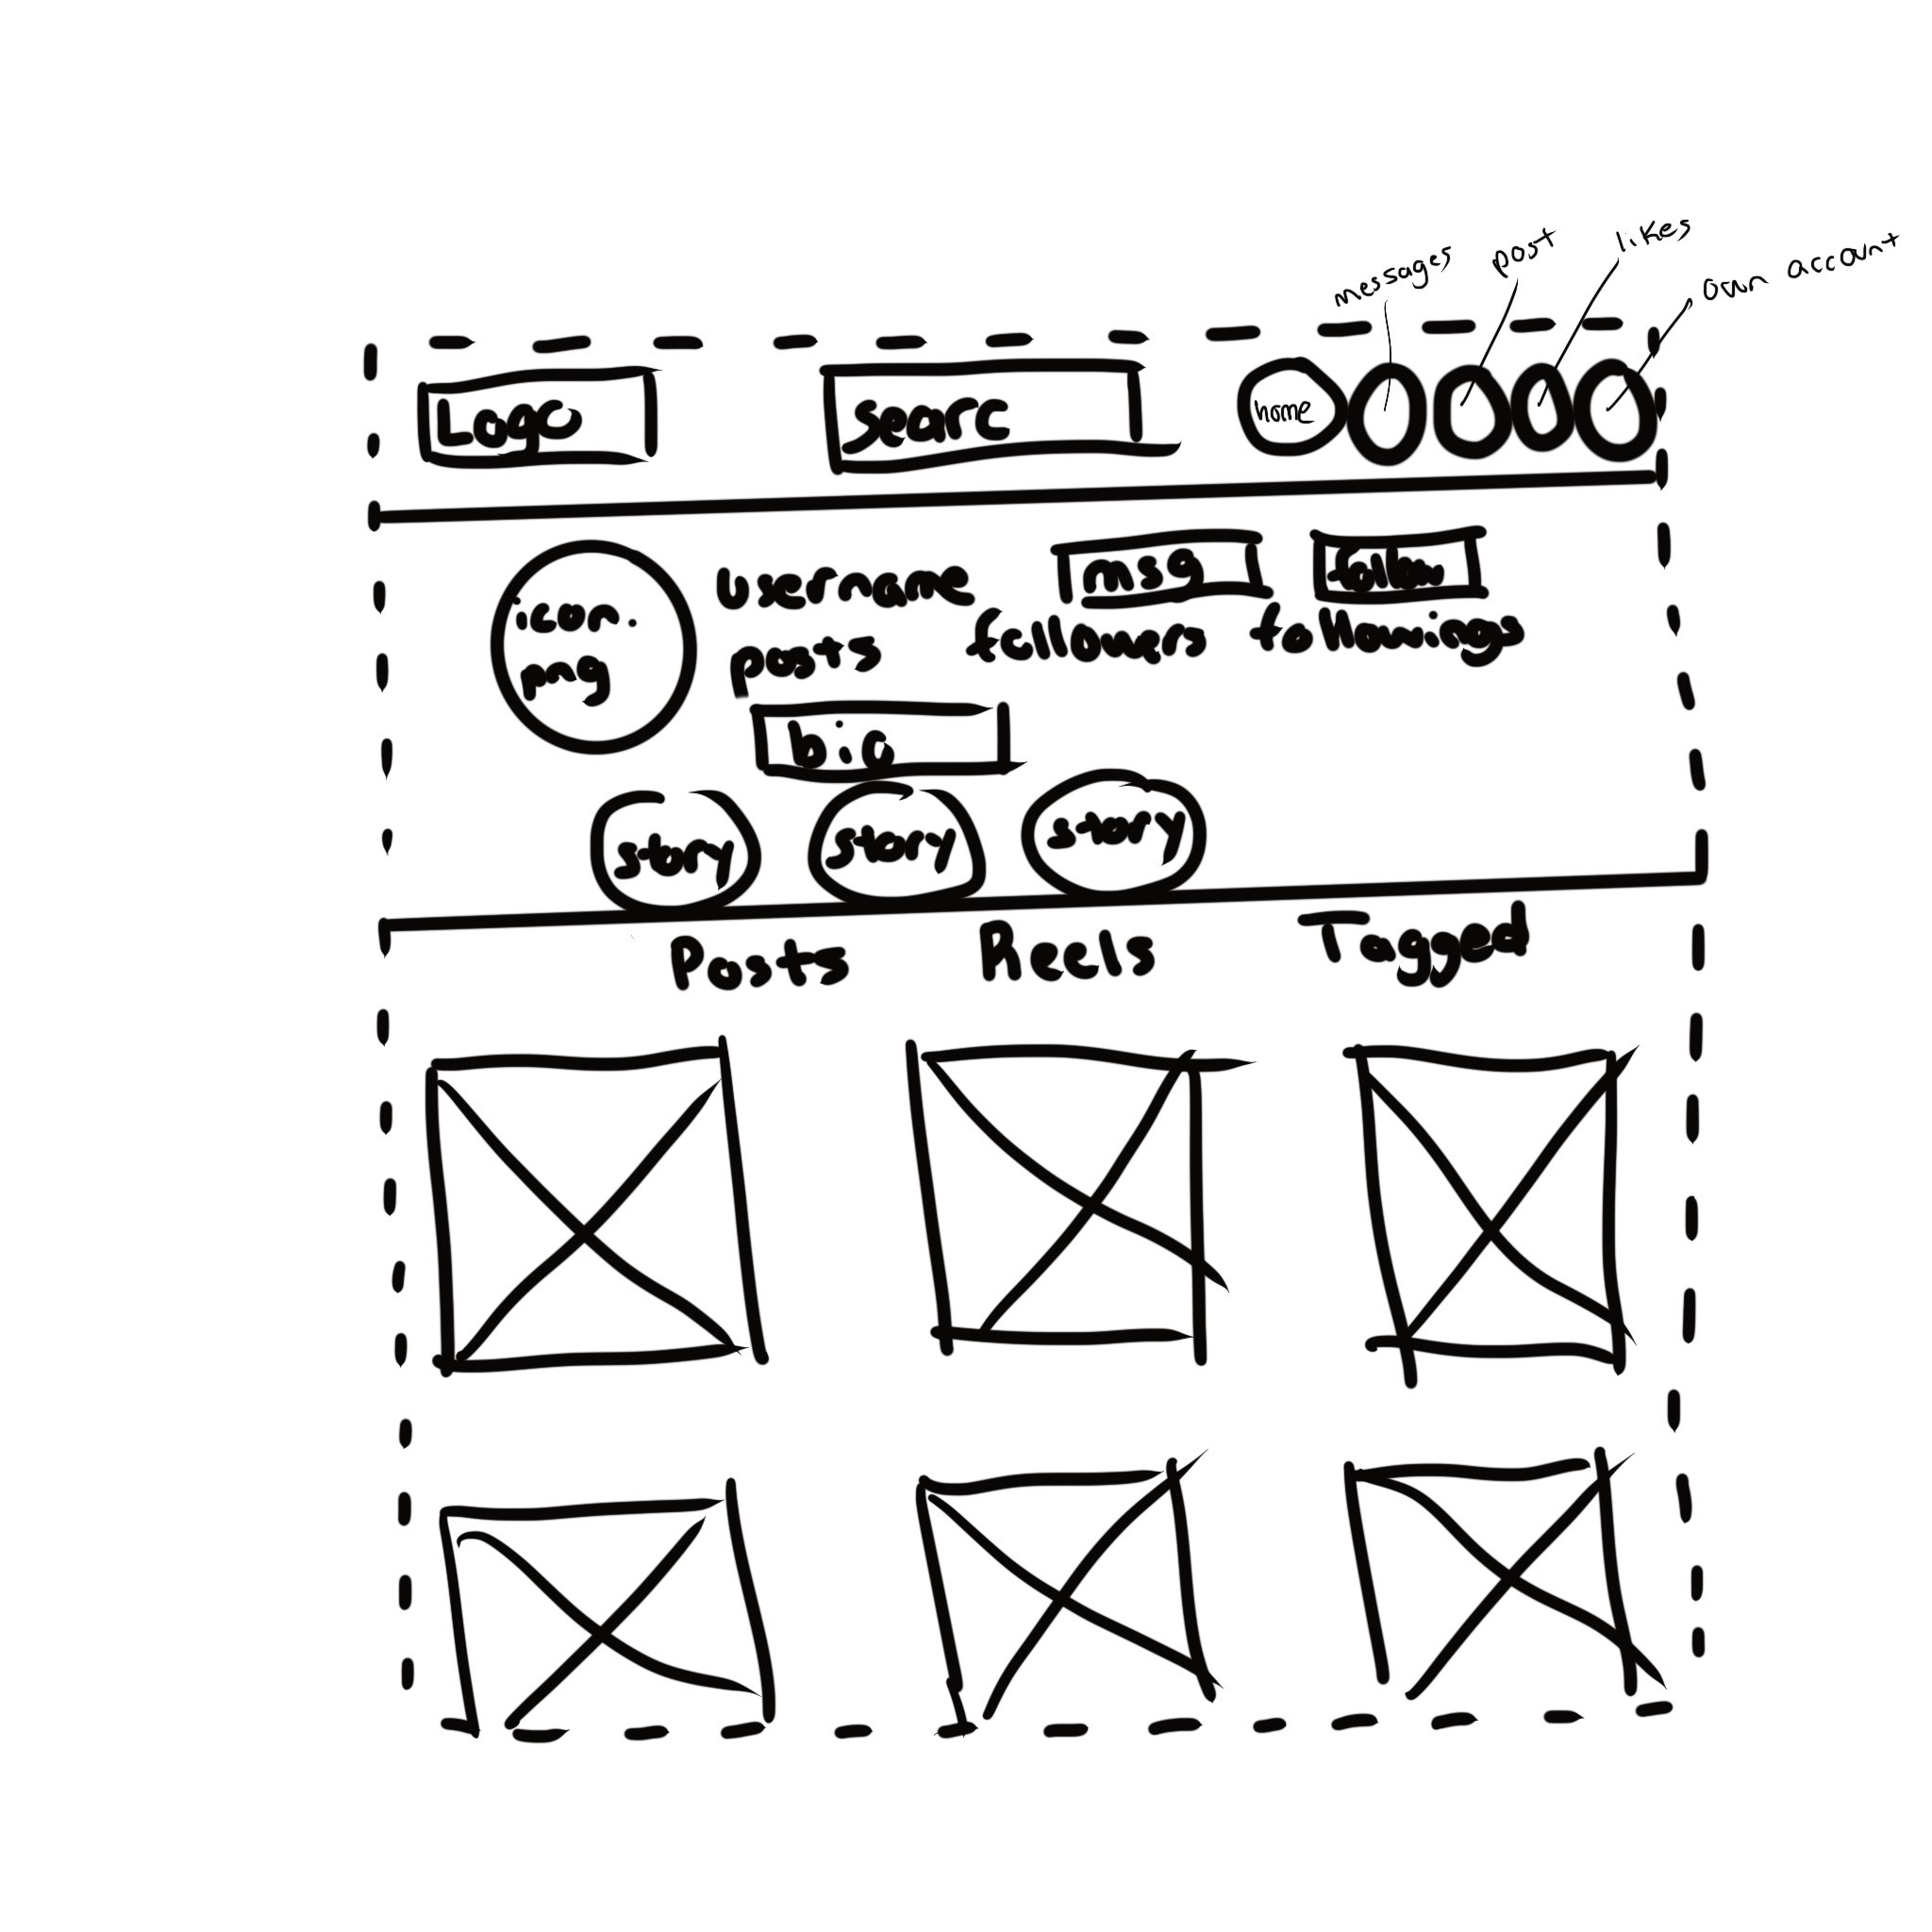 messages
post
likes
own account
Logo
searc
home
icon.
png
username
msg
follow
posts
followers
followings
bio
story
story
story
Posts
Reels
Tagged